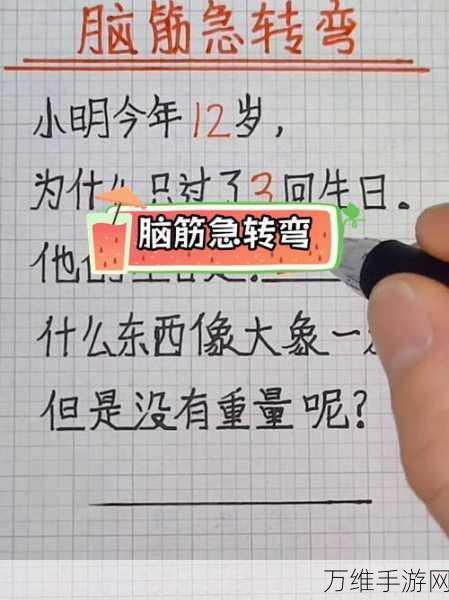 脑筋急转弯
小明今年12岁，
为什么只过了3回生日。
脑筋急转弯
他
什么东西像大象一
但是没有重量呢？
万维手游网